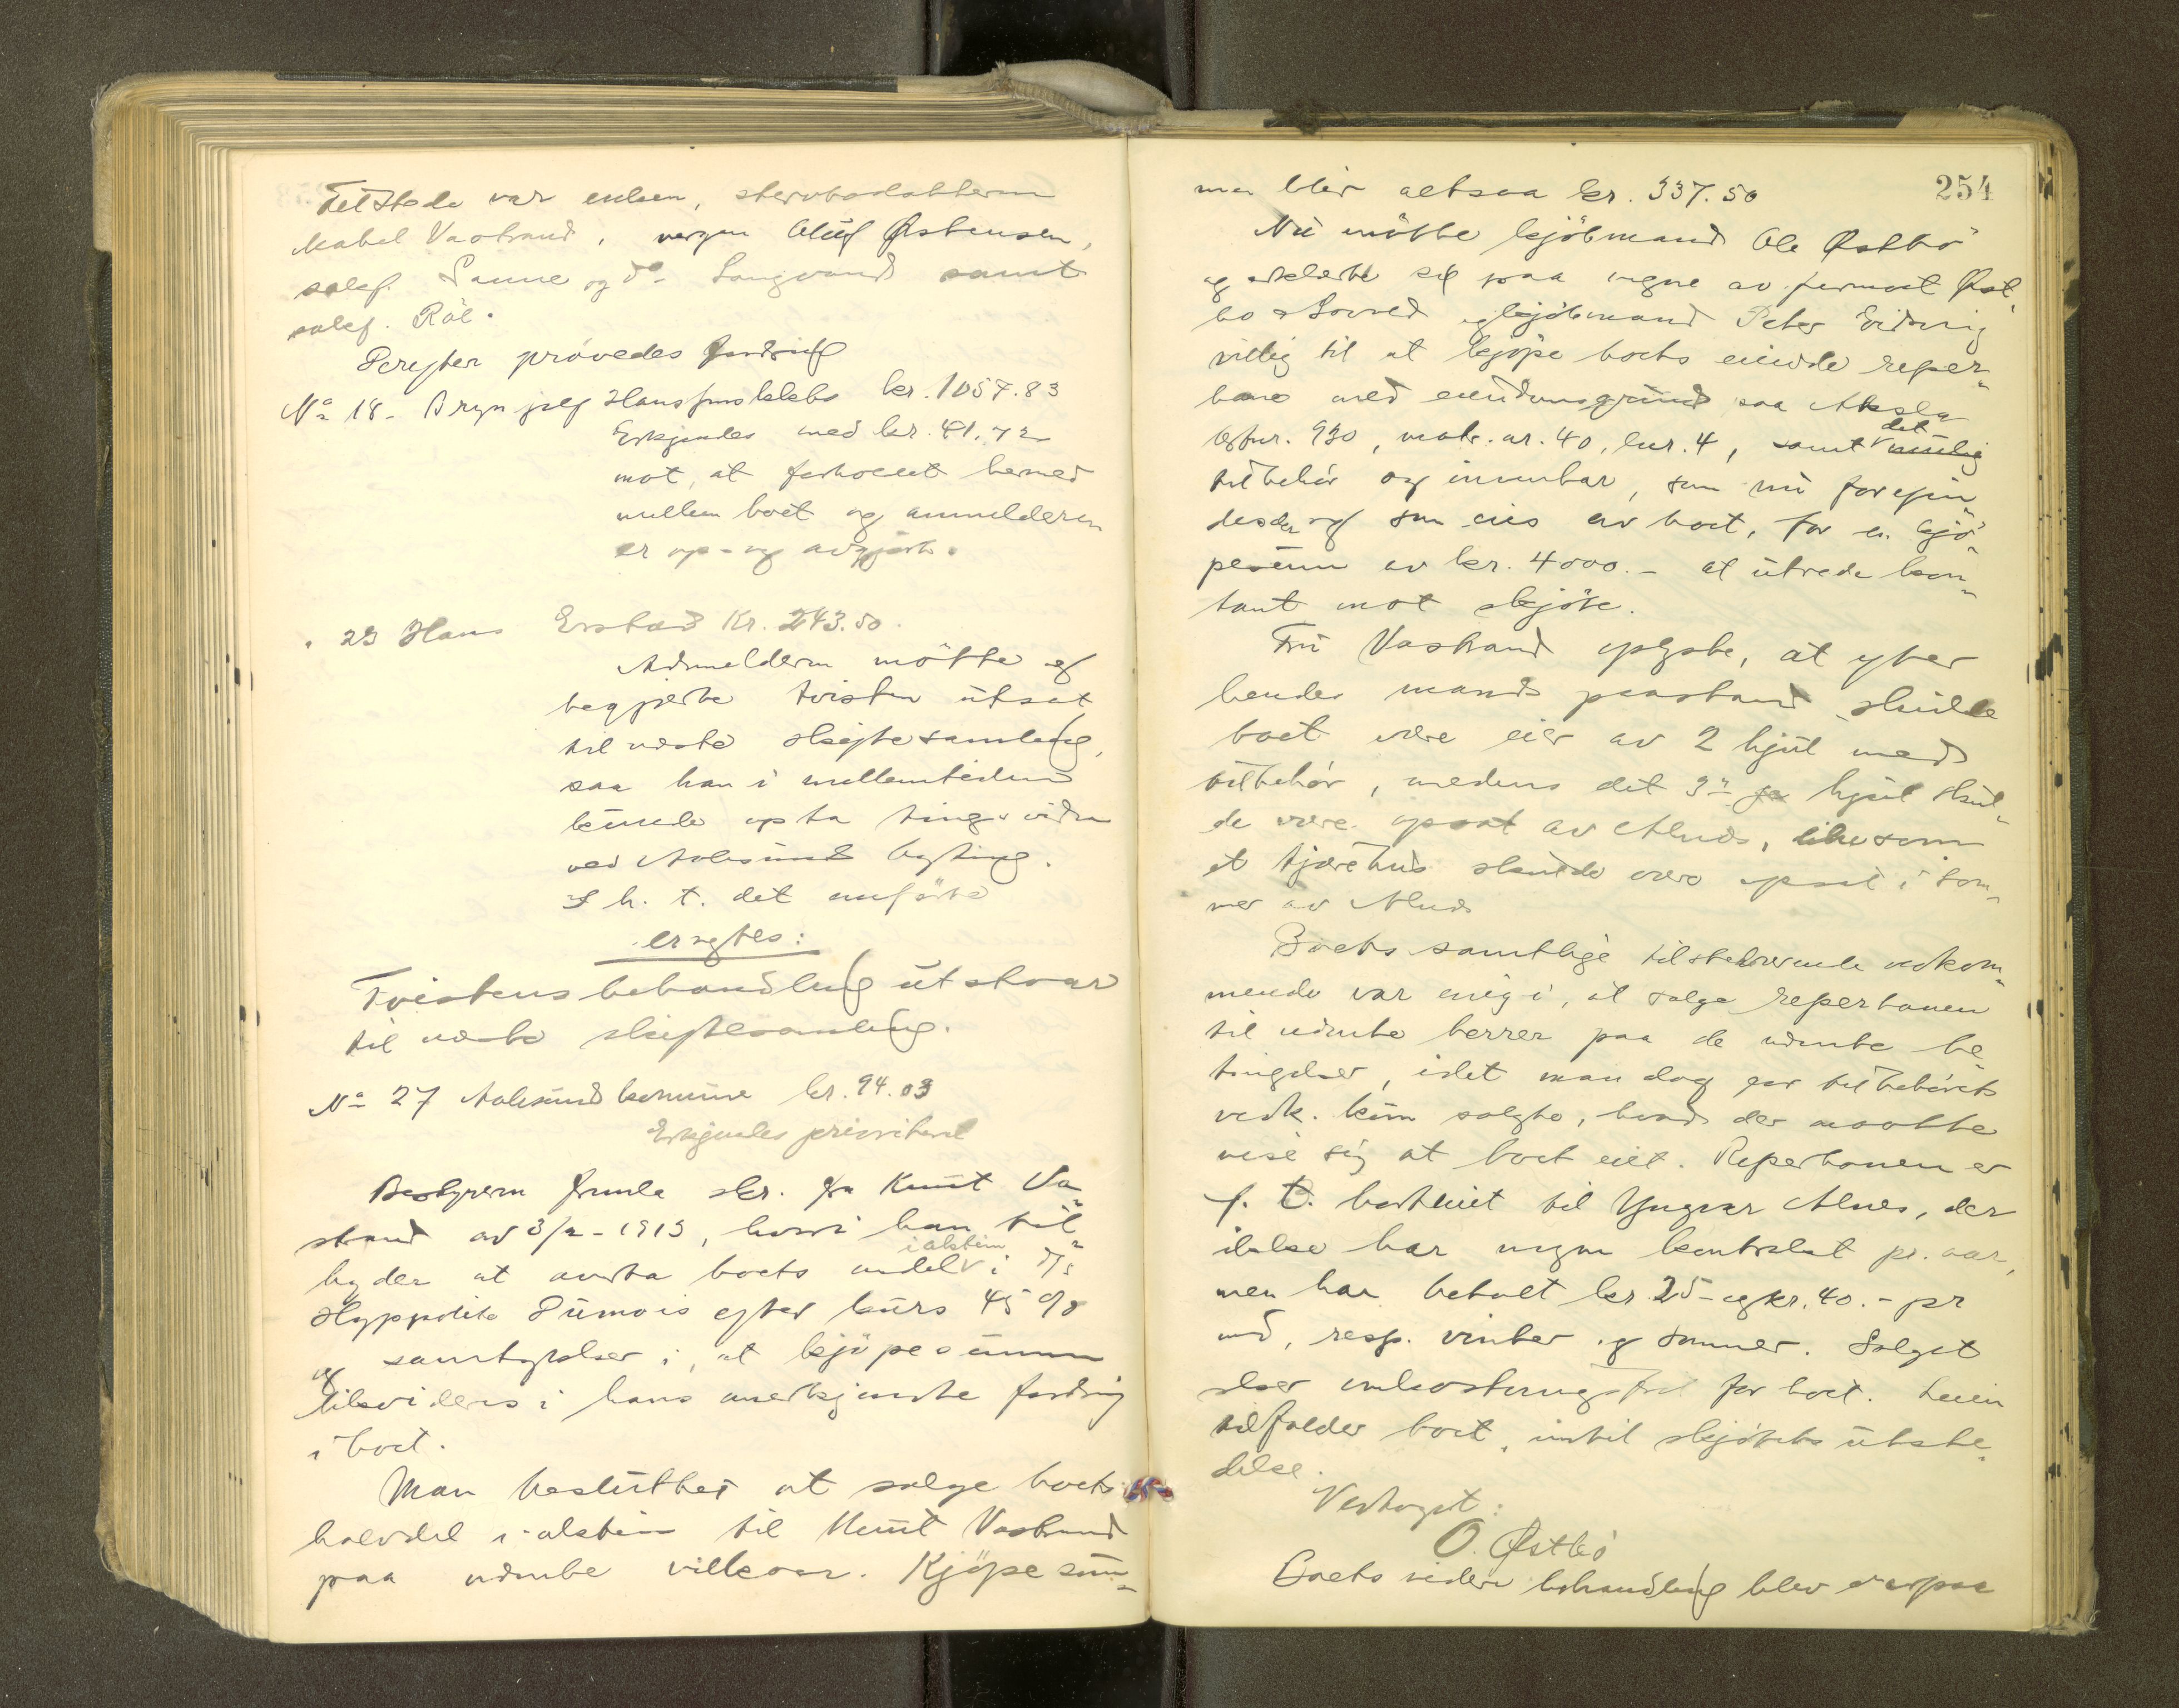 Tilstede var enken, stervbodatteren
Mabel Vastrand, vergen Oluf Østensen,
saksf. Sanne og do. Langvand samt
saksf. Röe.
Derefter prövedes fordring
No 18 - Brynjulf Hansens klebo kr. 1057.83
Erkjendes med kr. 41.72
mot, at forholdet hermed
mellem boet og anmelderen
er op- og avgjort.
" 23 Hans Erstad Kr. 243.50.
Anmelderen mötte og
begjærte tvisten utsat
til næste skiftesamling,
saa han i mellemtiden
kunde opta tingsvidne
ved Aalesund byting.
I h. t. det anförte
eragtes:
Tvistens behandling utstaar
til næste skiftesamling.
No 27 Aalesund komune kr. 94.03
Erkjendes prioritert
Bestyreren fremla skr. fra Knut Va-
strand av 3/2 - 1913, hvori han til-
byder at overta boets andel i aktien i D/s
Hyppolite Dumois efter kurs 45 %
og samtykker i, at kjöpesummen
likvideres i hans anerkjendte fordring
i boet.
Man besluttet at sælge boets
halvdel i aktien til Knut Vastrand
paa nævnte vilkaar. Kjöpesum-
254
men blir altsaa kr. 337.50
Nu mötte kjöbmand Ole Østbö
og erklærte sig paa vegne av firmaet Øst-
bö & Sovred og kjöbmand Peter Eidsvig
villig til at kjöpe boets eiende reper-
bane med eiendomsgrund paa Aksla
Gfnr. 930, matr. nr. 40, lnr. 4, samt det mulig
tilbehör og inventar, som nu forefin-
des der og som eies av boet, for en kjö-
pesum av kr. 4000.- at utrede kon-
tant mot skjöte.
Fru Vastrand oplyste, at efter
hendes mands paastand skulde
boet være eier av 2 hjul med
tilbehör, medens det 3die hjul skul-
de være opsat av Alnes, likesom
et tjærehus skulde være opsat i som-
mer av Alnes
Boets samtlige tilstedeværende vedkom-
mende var enig i, at sælge reperbanen
til nævnte herrer paa de nævnte be-
tingelser, idet man dog for tilbehörets
vedk. kun solgte, hvad der maatte
vise sig at boet eiet. Reperbanen er
f. t. bortleiet til Yngvar Alnes, der
ikke har nogen kontrakt pr. aar,
men har betalt kr. 25 - og kr. 40.- pr
md, resp. vinter og sommer. Salget
sker omkostningsfrit for boet. Leien
tilfalder boet, indtil skjötets utste-
delse.
Vedtaget:
O. Østbö
Boets videre behandling blev derpaa